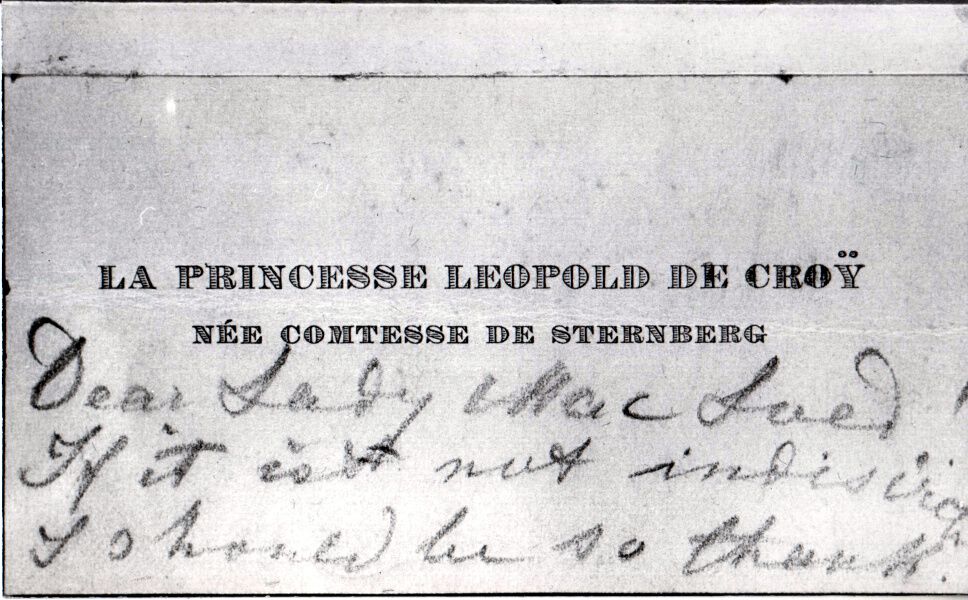 LA PRINCESSE LEOPOLD DE CROŸ
NÉE COMTESSE DE STERNBERG
Dear Lady Mac Loed
If it ist not
I should be so thank